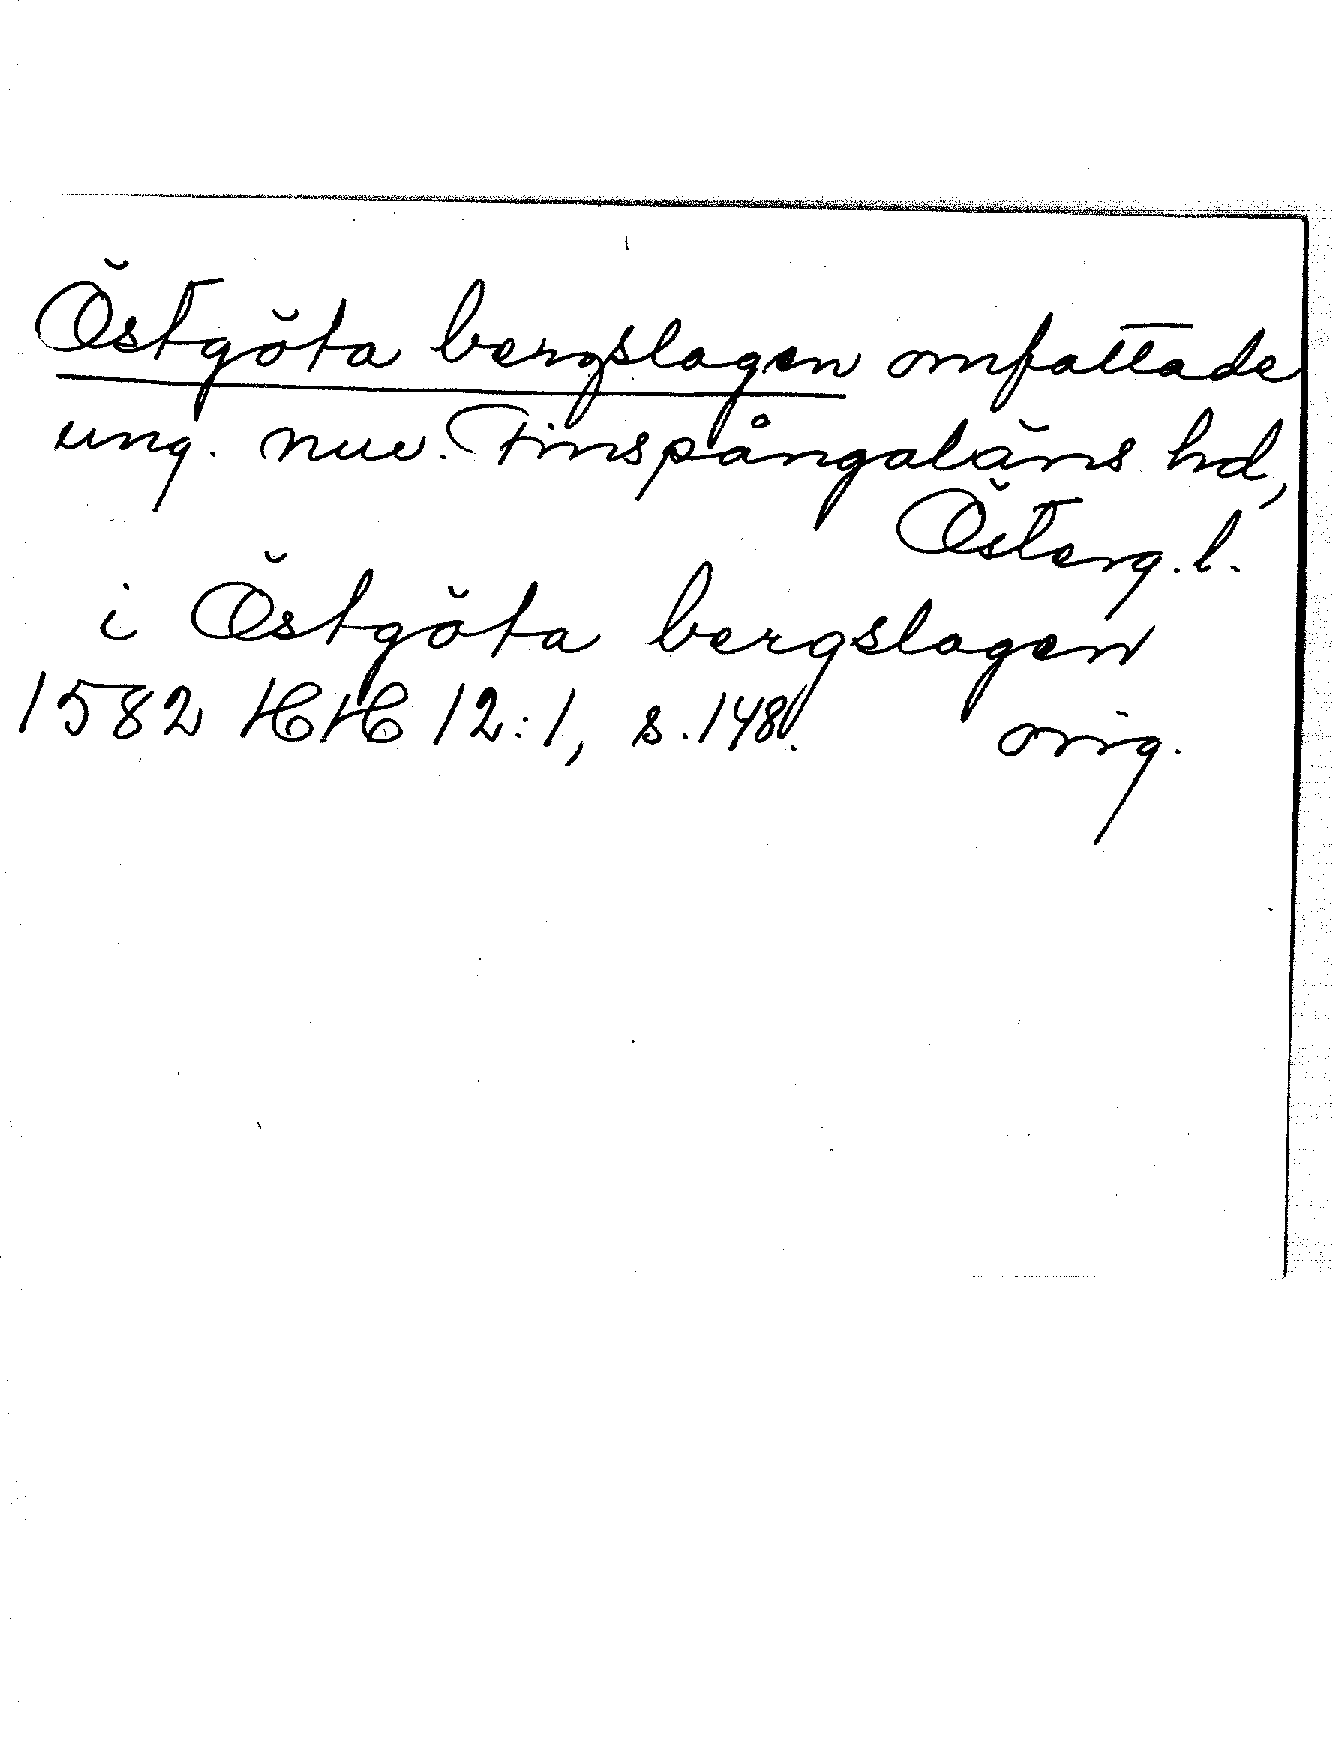 Östgöta bergslagen omfattade
ung. nuv. Finspångaläns hd,
Österg. l.
i Östgöta bergslagen
1582 HH 12:1, s. 148. orig.